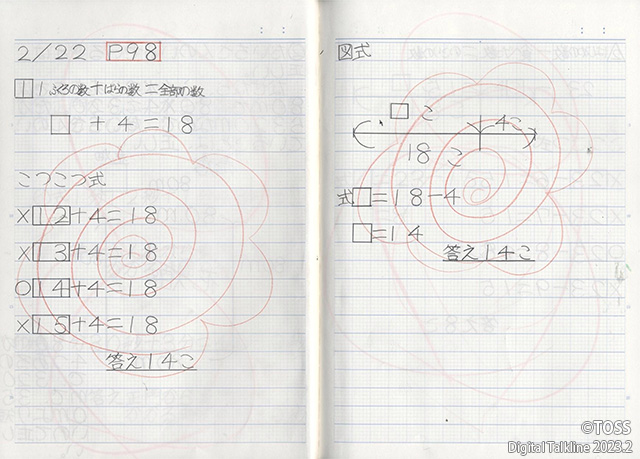 2/22 P98
1 1ふくろの数+ばらの数=全部の数
□+4=18
こつこつ式
×12+4=18
×13+4=18
○14+4=18
×15+4=18
答え14こ
図式
□こ 4こ
18こ
式□=18-4
□=14
答え14こ
©TOSS
Digital Talkline 2023.2